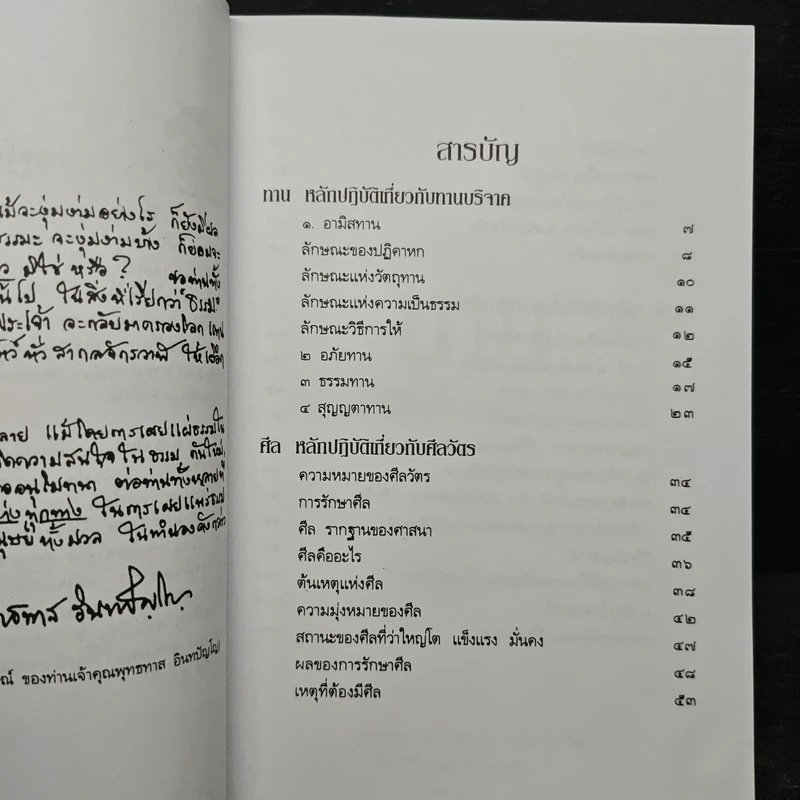 อย่างไร ก็ยังมีผล
ธรรมะ จะงุ่มง่ามบ้าง ก็ย่อมจะ
มิใช่ หรือ?
ขอท่านทั้ง
ในสิ่งที่เรียกว่า "ธรรมะ"
จะกลับมาครองโลก แทน
ทั่ว สากลจักรวาฬ ให้เยือก
แม้โดยการเผยแผ่ธรรมใน
ความสนใจ ใน ธรรม กันใหม่,
อนุโมทนา ต่อท่านทั้งหลายที่
ทุกทาง ในการเผยแพร่ธรรม
ทั้งมวล ในทำนองดังกล่าว
อินทปัญโญ
ของท่านเจ้าคุณพุทธทาส อินทปัญโญ)
สารบัญ
ทาน หลักปฏิบัติเกี่ยวกับทานบริจาค
๑. อามิสทาน ๗
ลักษณะของปฏิคาหก ๘
ลักษณะแห่งวัตถุทาน ๑๐
ลักษณะแห่งความเป็นธรรม ๑๑
ลักษณะวิธีการให้ ๑๒
๒ อภัยทาน ๑๕
๓ ธรรมทาน ๑๗
๔ สุญญตาทาน ๒๓
ศีล หลักปฏิบัติเกี่ยวกับศีลวัตร
ความหมายของศีลวัตร ๓๔
การรักษาศีล ๓๔
ศีล รากฐานของศาสนา ๓๕
ศีลคืออะไร ๓๖
ต้นเหตุแห่งศีล ๓๘
ความมุ่งหมายของศีล ๔๒
สถานะของศีลที่ว่าใหญ่โต แข็งแรง มั่นคง ๔๗
ผลของการรักษาศีล ๔๘
เหตุที่ต้องมีศีล ๕๓